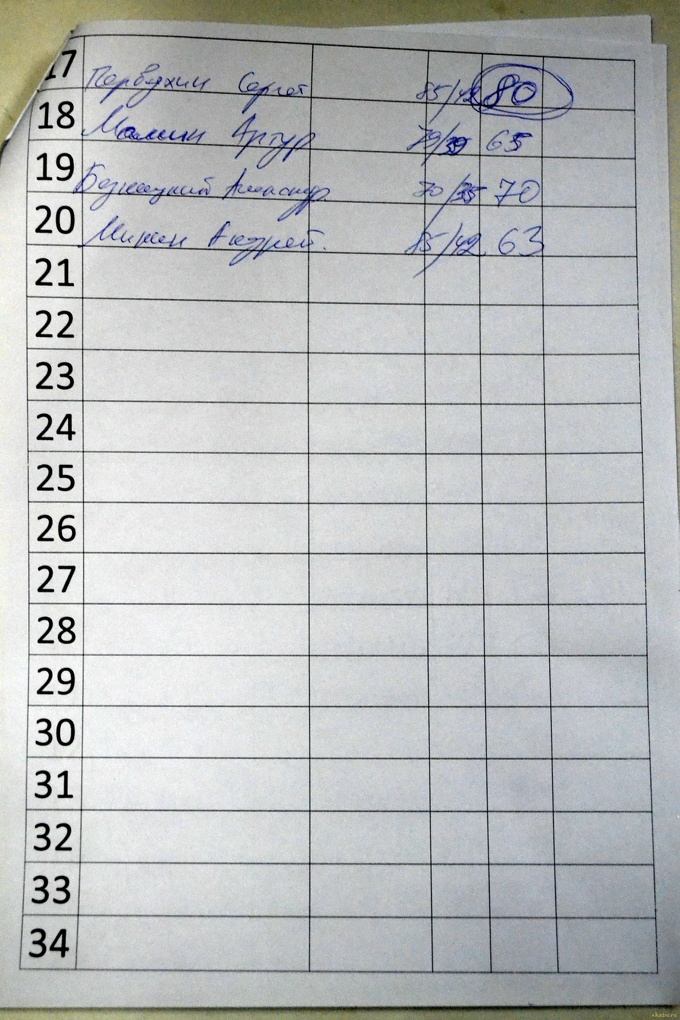 17 Первухин Сергей 85/42 80
18 Мамин Артур 79/39 65
19 Александр 70/35 70
20 Мирен Андрей. 85/42 63
21
22
23
24
25
26
27
28
29
30
31
32
33
34